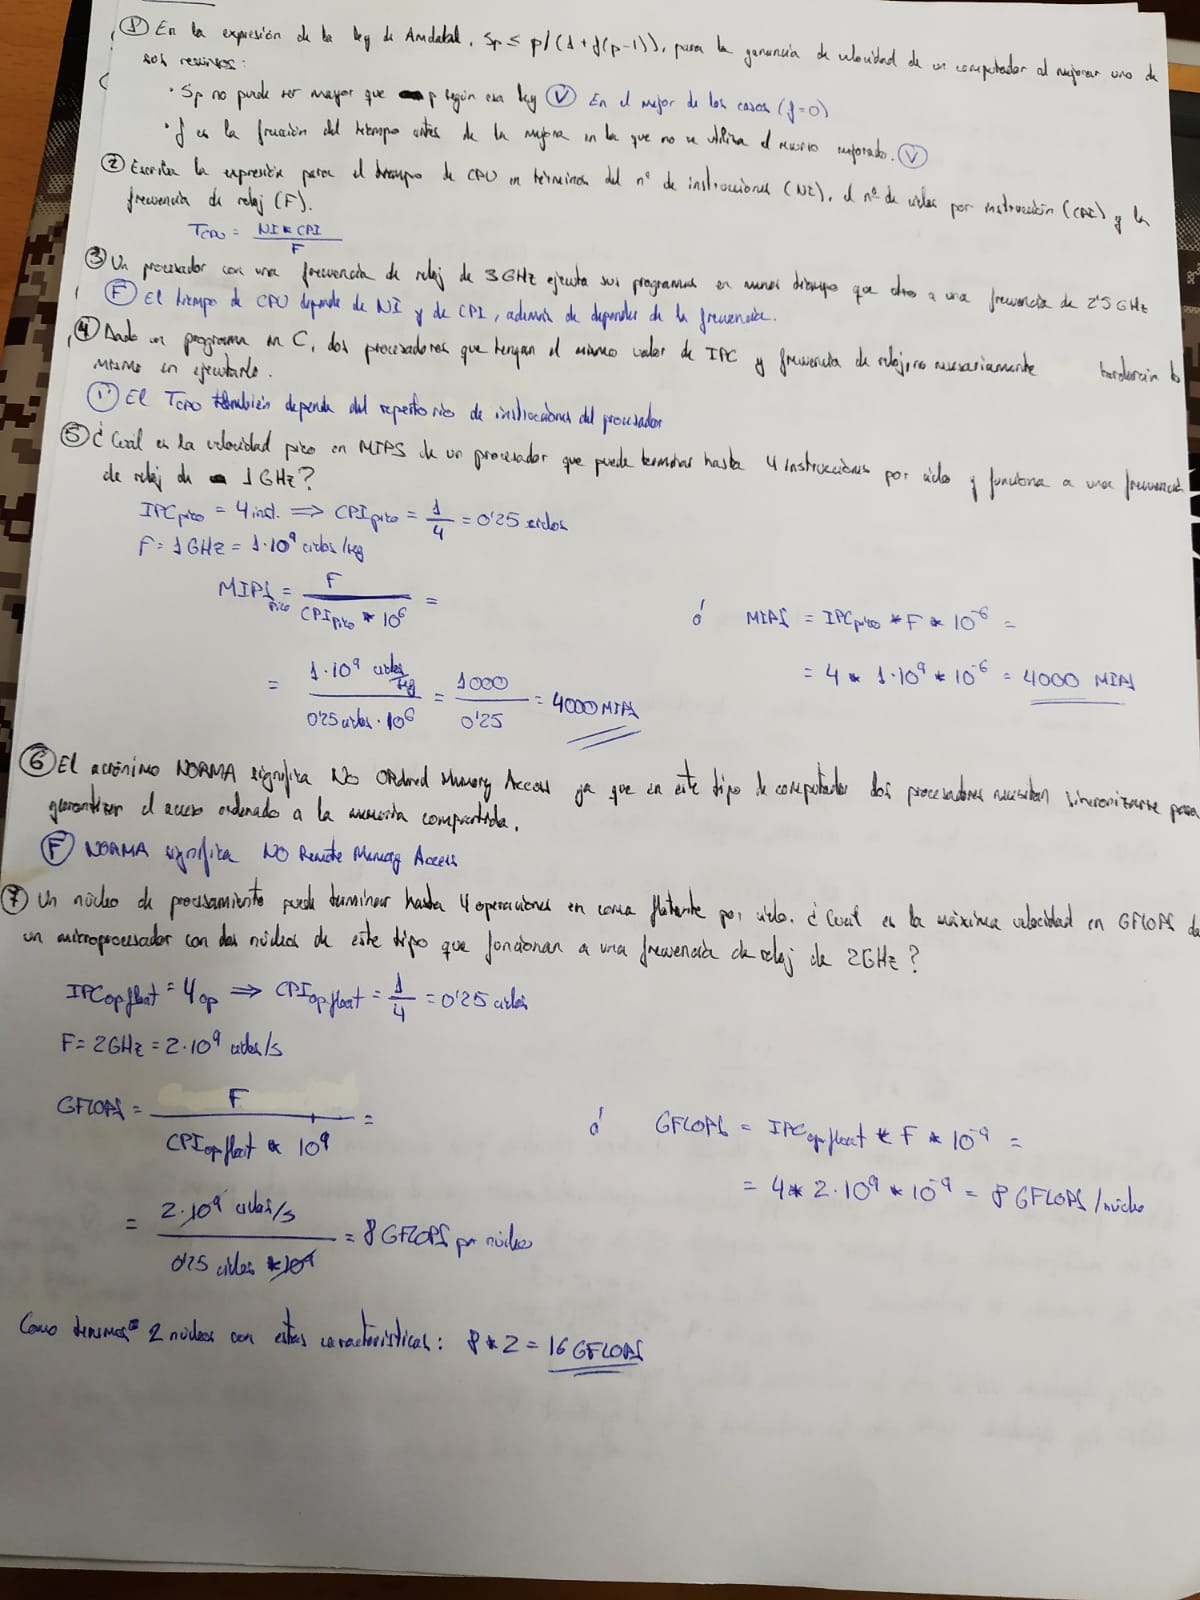 ① En la expresión de la ley de Amdahl, Sp ≤ p/(1+f(p-1)), para la ganancia de velocidad de un computador al mejorar uno de
sus recursos:
· Sp no puede ser mayor que p según esa ley Ⓥ En el mejor de los casos (f=0)
· f es la fracción del tiempo antes de la mejora en la que no se utiliza el recurso mejorado. Ⓥ
② Escriba la expresión para el tiempo de CPU en términos del nº de instrucciones (NI), el nº de ciclos por instrucción (CPI) y la
frecuencia de reloj (F).
TCPU = NI * CPI / F
③ Un procesador con una frecuencia de reloj de 3GHz ejecuta sus programas en menos tiempo que otro a una frecuencia de 2'5GHz
Ⓕ El tiempo de CPU depende de NI y de CPI, además de depender de la frecuencia.
④ Dado un programa en C, dos procesadores que tengan el mismo valor de IPC y frecuencia de reloj, no necesariamente tardarán lo
mismo en ejecutarlo.
Ⓥ El TCPU también depende del repertorio de instrucciones del procesador
⑤ ¿Cuál es la velocidad pico en MIPS de un procesador que puede terminar hasta 4 instrucciones por ciclo y funciona a una frecuencia
de reloj de 1GHz?
IPCpico = 4 inst. ⇒ CPIpico = 1/4 = 0'25 ciclos
F = 1GHz = 1·10⁹ ciclos/seg
MIPSpico = F / CPIpico * 10⁶ =
ó MIPS = IPCpico * F * 10⁻⁶ =
= 1·10⁹ ciclos/seg / 0'25 ciclos · 10⁶ = 1000 / 0'25 = 4000 MIPS
= 4 * 1·10⁹ * 10⁻⁶ = 4000 MIPS
⑥ El acrónimo NORMA significa No ORdered Memory Access ya que en este tipo de computador los procesadores necesitan sincronizarse para
garantizar el acceso ordenado a la memoria compartida.
Ⓕ NORMA significa NO Remote Memory Access
⑦ Un núcleo de procesamiento puede terminar hasta 4 operaciones en coma flotante por ciclo. ¿Cuál es la máxima velocidad en GFLOPS de
un microprocesador con dos núcleos de este tipo que funcionan a una frecuencia de reloj de 2GHz?
IPCop float = 4 op ⇒ CPIop float = 1/4 = 0'25 ciclos
F = 2GHz = 2·10⁹ ciclos/s
GFLOPS = F / CPIop float * 10⁹ =
ó GFLOPS = IPCop float * F * 10⁻⁹ =
= 4 * 2·10⁹ * 10⁻⁹ = 8 GFLOPS/núcleo
= 2·10⁹ ciclos/s / 0'25 ciclos * 10⁹ = 8 GFLOPS por núcleo
Como tenemos 2 núcleos con estas características: 8 * 2 = 16 GFLOPS